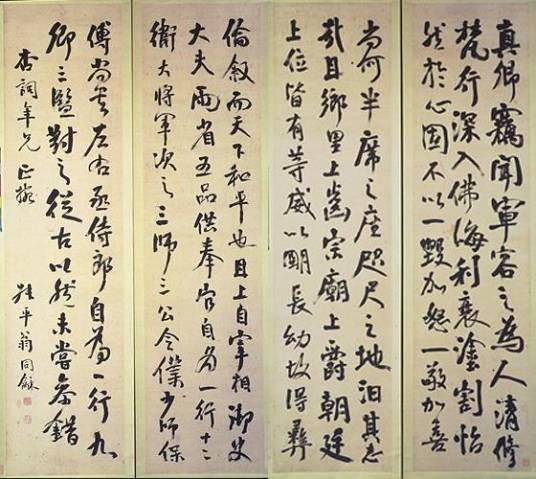 真卿竊聞軍容之為人清修
梵行深入佛海利衰塗割恬
然於心固不以一毀加怒一敬加喜
尚何半席之座咫尺之地汨其志
哉且鄉里上齒宗廟上爵朝廷
上位皆有等威以朙長幼故得彝
倫敘而天下和平也且上自宰相御史
大夫兩省五品供奉官自為一行十二
衛大將軍次之三師三公令僕少師保
傅尚書左右丞侍郎自為一行九
卿三監對之從古以然未嘗參錯
杏詞年兄正
叔平翁同龢